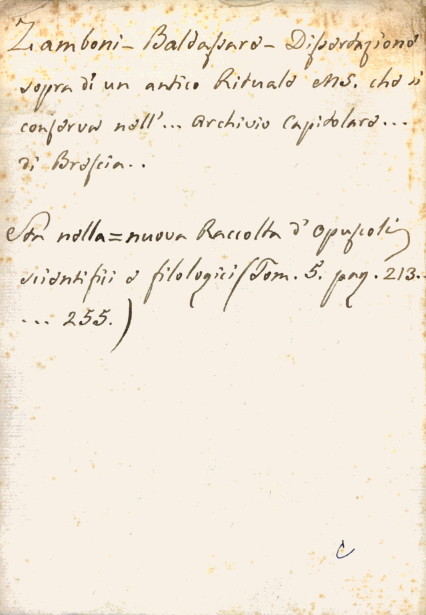 Zamboni - Baldassare - Dissertazione
sopra d'un antico Rituale MS. che si
conserva nell'... Archivio Capitolare...
di Brescia..
Sta nella = nuova Raccolta d'opuscoli
scientifici e filologici (Tom. 5. pag. 213..
... 255.)
C